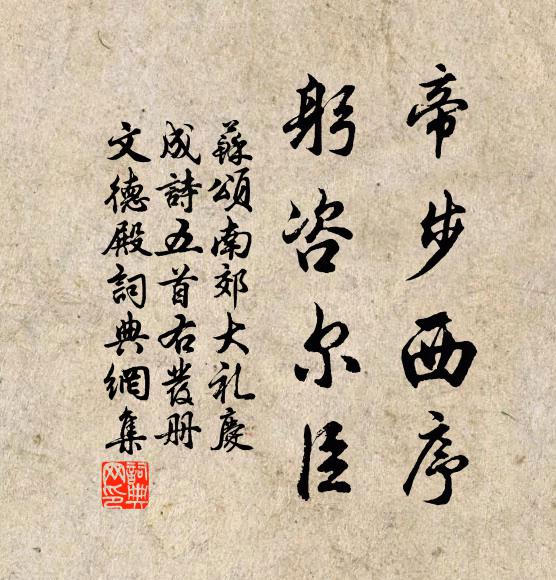 帝步西序
躬咨尔臣
蘇頌南郊大礼慶
成詩五首右發册
文德殿詞典網集
詞典
网印